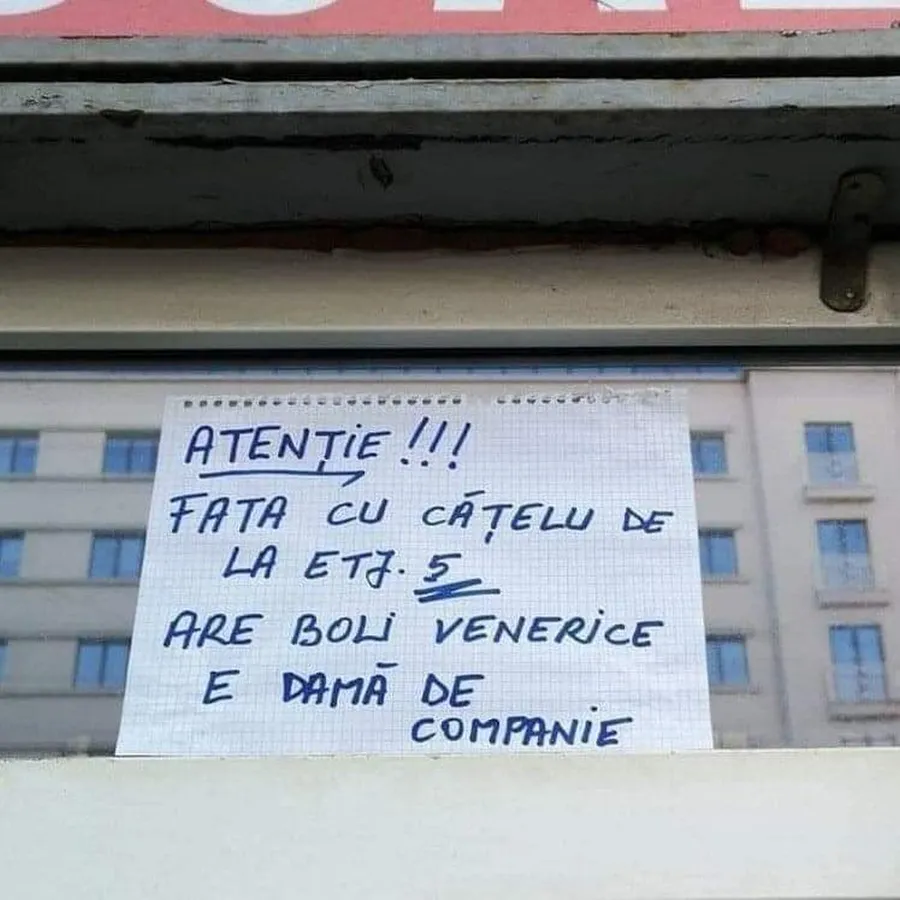 ATENȚIE!!!
FATA CU CĂȚELU DE
LA ETJ. 5
ARE BOLI VENERICE
E DAMĂ DE
COMPANIE